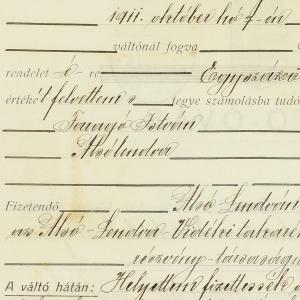 1911. október hó 1-én
váltónál fogva
rendelet-é-re Egyszáz
értéke't felvettem s tegye számolásba tudó
Faragó István
Alsólendva
Fizetendő Alsó-Lendván
az Alsó-Lendva-Vidéki takaré
részvény-társaságn
A váltó hátán: Helyettem fizettessék